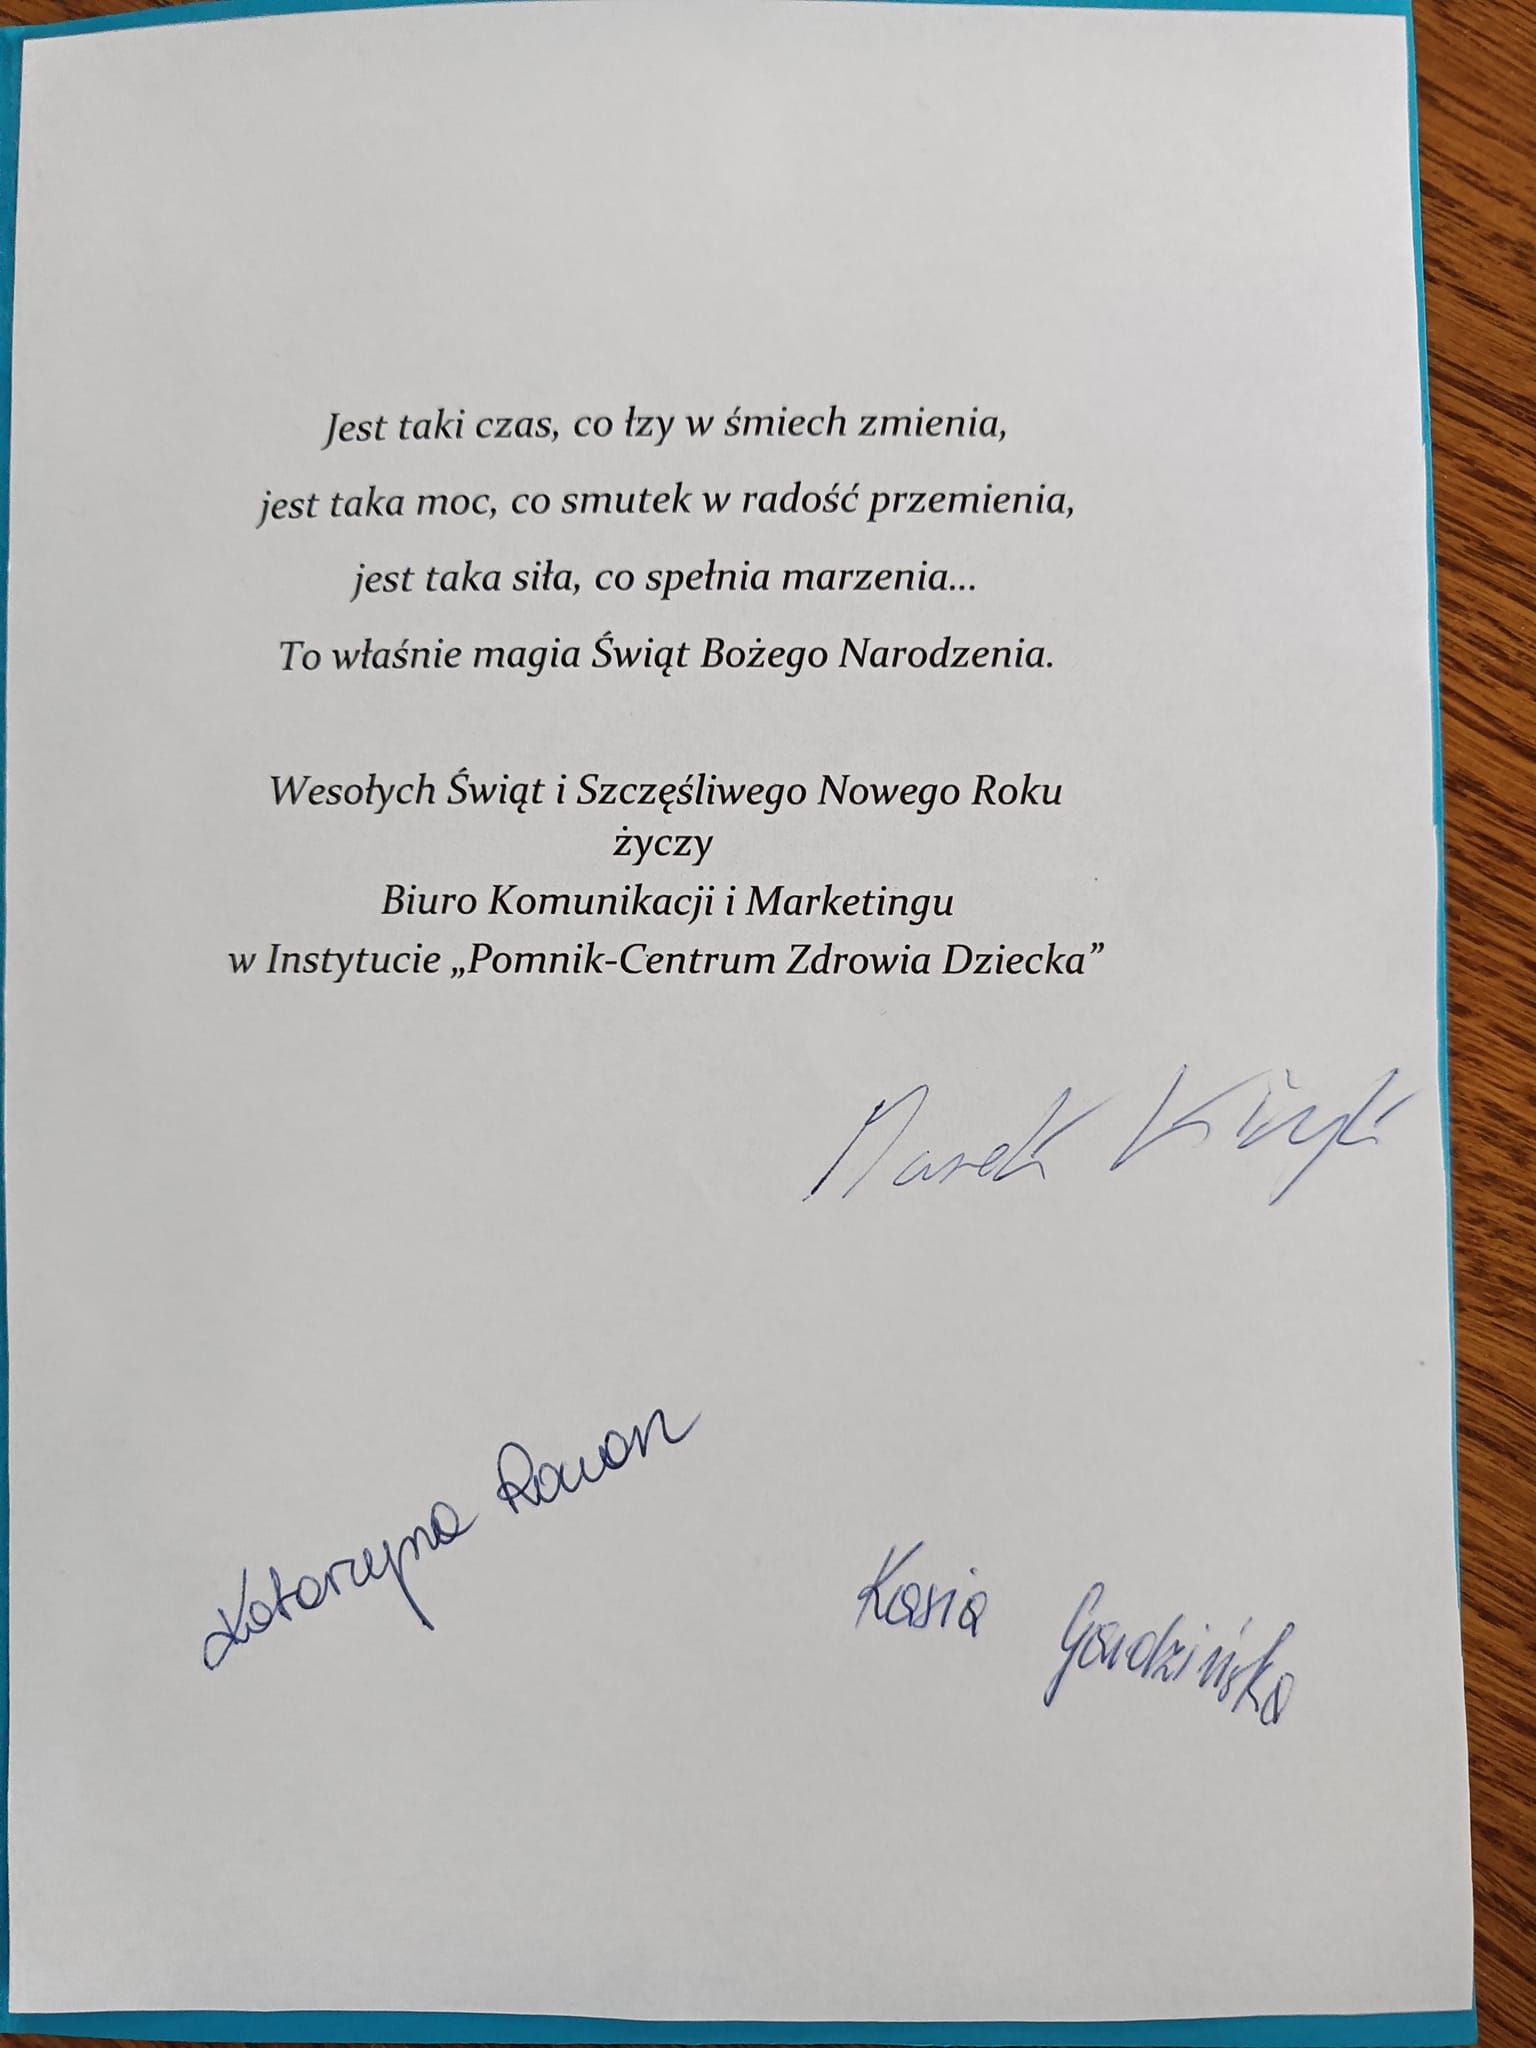 Jest taki czas, co łzy w śmiech zmienia,
jest taka moc, co smutek w radość przemienia,
jest taka siła, co spełnia marzenia...
To właśnie magia Świąt Bożego Narodzenia.
Wesołych Świąt i Szczęśliwego Nowego Roku
życzy
Biuro Komunikacji i Marketingu
w Instytucie „Pomnik-Centrum Zdrowia Dziecka”
Marek
Katarzyna
Kasia